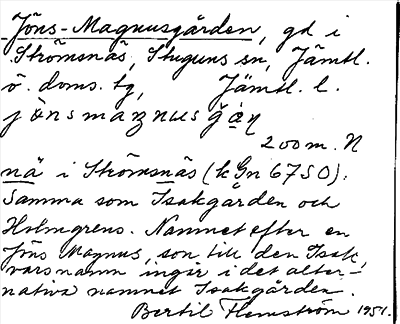 Jöns-Magnusgården, gd i
Strömsnäs, Stuguns sn, Jämtl.
ö. doms. tg, Jämtl. l.
jönsmaŋnusgạ̊ṇ
200 m. N
nä i Strömsnäs (k Gn 6750).
Samma som Isakgården och
Holmgrens. Namnet efter en
Jöns Magnus, son till den Isak,
vars namn ingår i det alter-
nativa namnet Isakgården.
Bertil Flemström 1951.